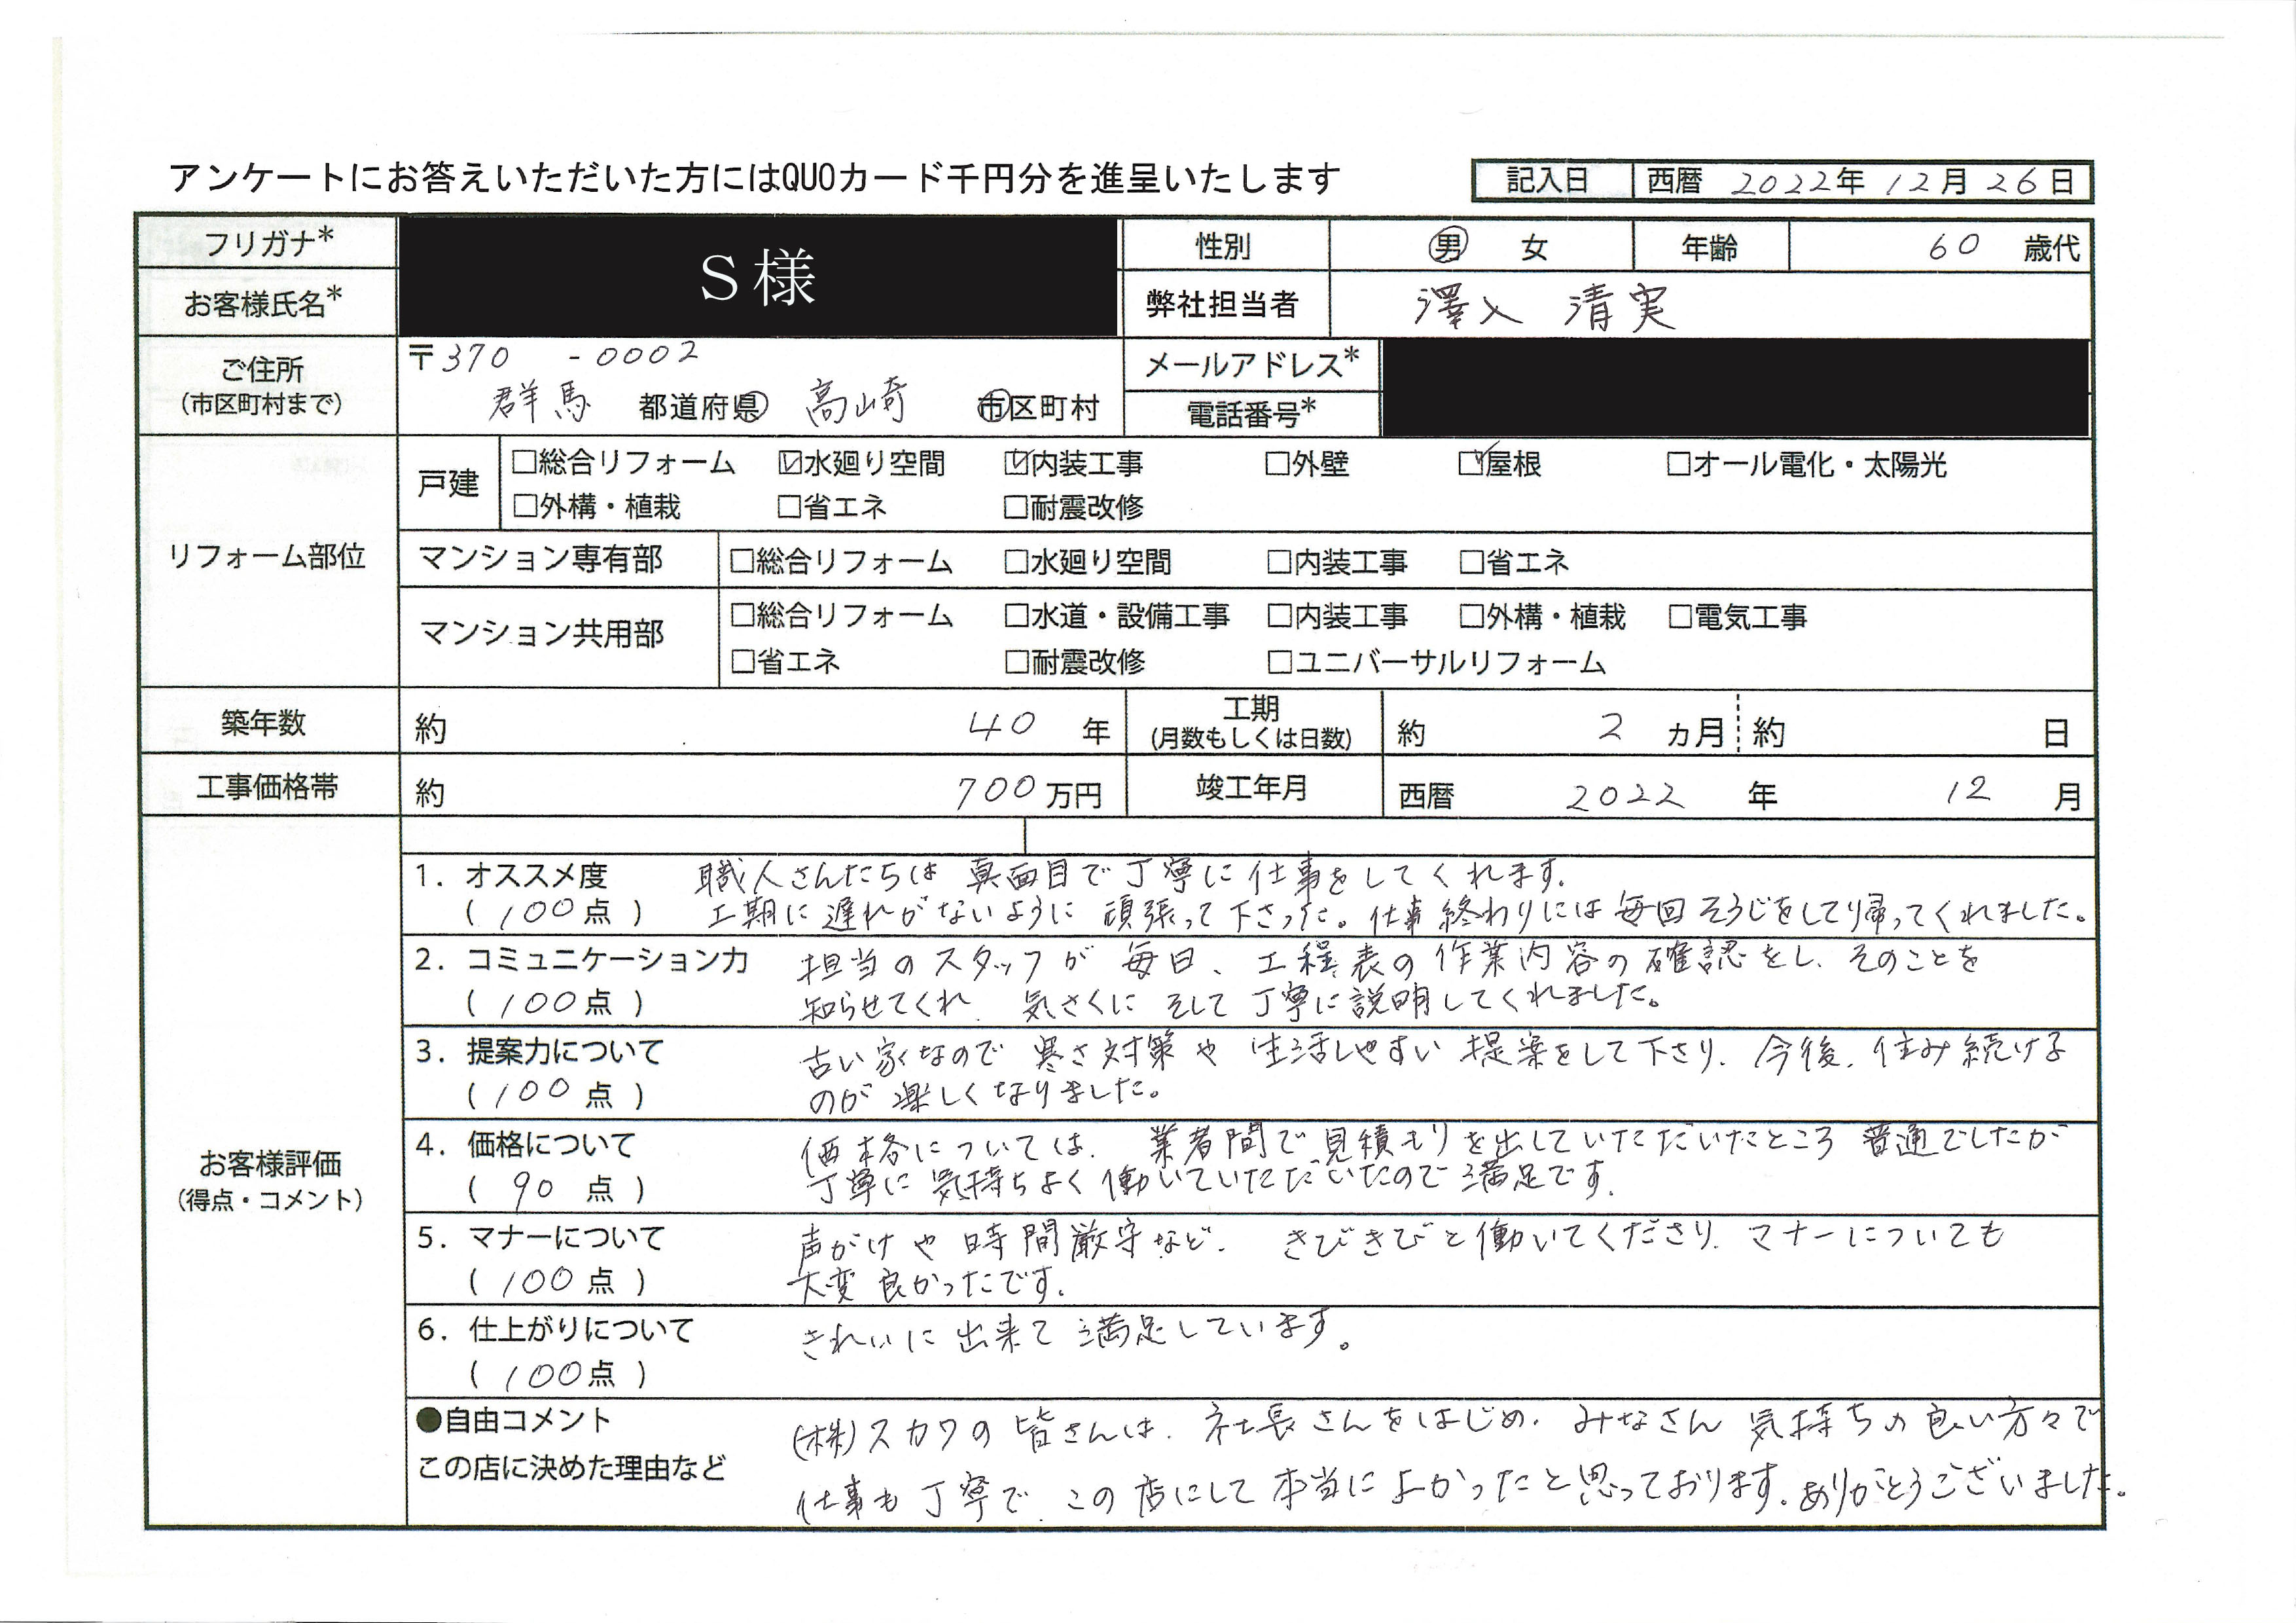 アンケートにお答えいただいた方にはQUOカード千円分を進呈いたします
記入日 西暦 2022年 12月 26日
フリガナ*
お客様氏名*
S様
性別 男 女 年齢 60 歳代
弊社担当者 澤入 清実
ご住所
(市区町村まで)
〒370 -0002
群馬 都道府県 高崎 市区町村
メールアドレス*
電話番号*
リフォーム部位
戸建
□総合リフォーム ☑水廻り空間 ☑内装工事 □外壁 ☑屋根 □オール電化・太陽光
□外構・植栽 □省エネ □耐震改修
マンション専有部 □総合リフォーム □水廻り空間 □内装工事 □省エネ
マンション共用部
□総合リフォーム □水道・設備工事 □内装工事 □外構・植栽 □電気工事
□省エネ □耐震改修 □ユニバーサルリフォーム
築年数 約 40 年
工期
(月数もしくは日数)
約 2 カ月 約 日
工事価格帯 約 700万円 竣工年月 西暦 2022 年 12 月
お客様評価
(得点・コメント)
1. オススメ度 職人さんたちは 真面目で丁寧に仕事をしてくれます。
(100点) 工期に遅れがないように頑張って下さった。仕事終わりには毎回そうじをして帰ってくれました。
2. コミュニケーション力 担当のスタッフが毎日、工程表の作業内容の確認をし、そのことを
(100点) 知らせてくれ、気さくにそして丁寧に説明してくれました。
3. 提案力について 古い家なので寒さ対策や生活しやすい提案をして下さり、今後、住み続ける
(100点) のが楽しくなりました。
4. 価格について 価格については、業者間で見積もりを出していただいたところ普通でしたが
(90 点) 丁寧に気持ちよく働いていただいたので満足です。
5. マナーについて 声がけや時間厳守など、きびきびと働いてくださり、マナーについても
(100点) 大変良かったです。
6. 仕上がりについて きれいに出来て満足しています。
(100点)
●自由コメント (株)スカワの皆さんは、社長さんをはじめ、みなさん気持ちの良い方々で
この店に決めた理由など 仕事も丁寧で、この店にして本当によかったと思っております。ありがとうございました。